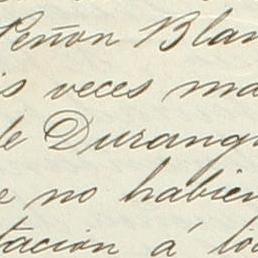 Peñon Blan
s veces ma
de Durang
e no habien
tacion á los